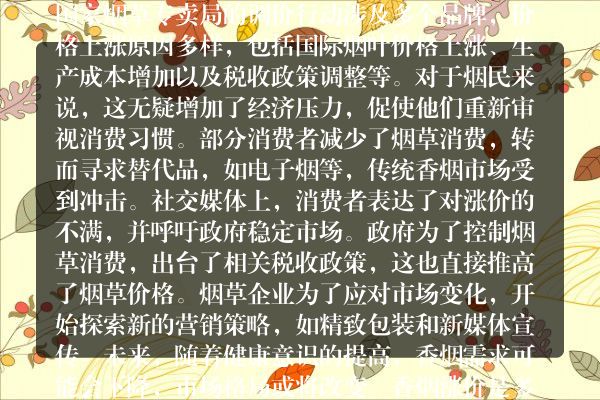 国家烟草专卖局的调价行动涉及多个品牌，价
格上涨原因多样，包括国际烟叶价格上涨、生
产成本增加以及税收政策调整等。对于烟民来
说，这无疑增加了经济压力，促使他们重新审
视消费习惯。部分消费者减少了烟草消费，转
而寻求替代品，如电子烟等，传统香烟市场受
到冲击。社交媒体上，消费者表达了对涨价的
不满，并呼吁政府稳定市场。政府为了控制烟
草消费，出台了相关税收政策，这也直接推高
了烟草价格。烟草企业为了应对市场变化，开
始探索新的营销策略，如精致包装和新媒体宣
传。未来，随着健康意识的提高，香烟需求可